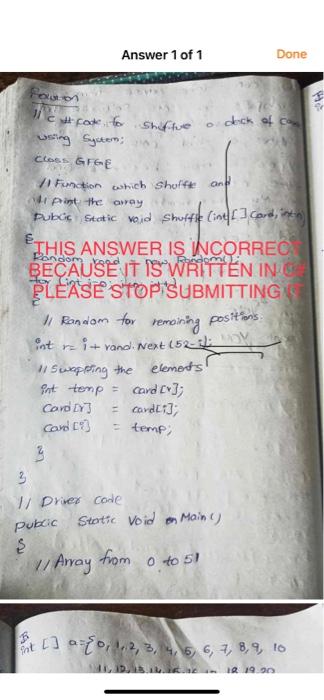 Answer 1 of 1
Done
Solution
// C # code for Shuffle a deck of
using System;
class GFGE
// Function which shuffle and
// print the array
Public Static void Shuffle (int [] card, int n)
{
THIS ANSWER IS INCORRECT
Random rand = new Random();
BECAUSE IT IS WRITTEN IN C#
PLEASE STOP SUBMITTING IT
{
// Random for remaining positions.
int r= i + rand. Next (52-i);
// Swapping the elements
int temp = card [r];
Card [r] = card[i];
Card [i] = temp;
}
}
// Driver Code
Public Static Void Main()
{
// Array from 0 to 51
int [] a={0, 1, 2, 3, 4, 5, 6, 7, 8, 9, 10
11, 12, 13, 14, 15, 16 17 18 19 20